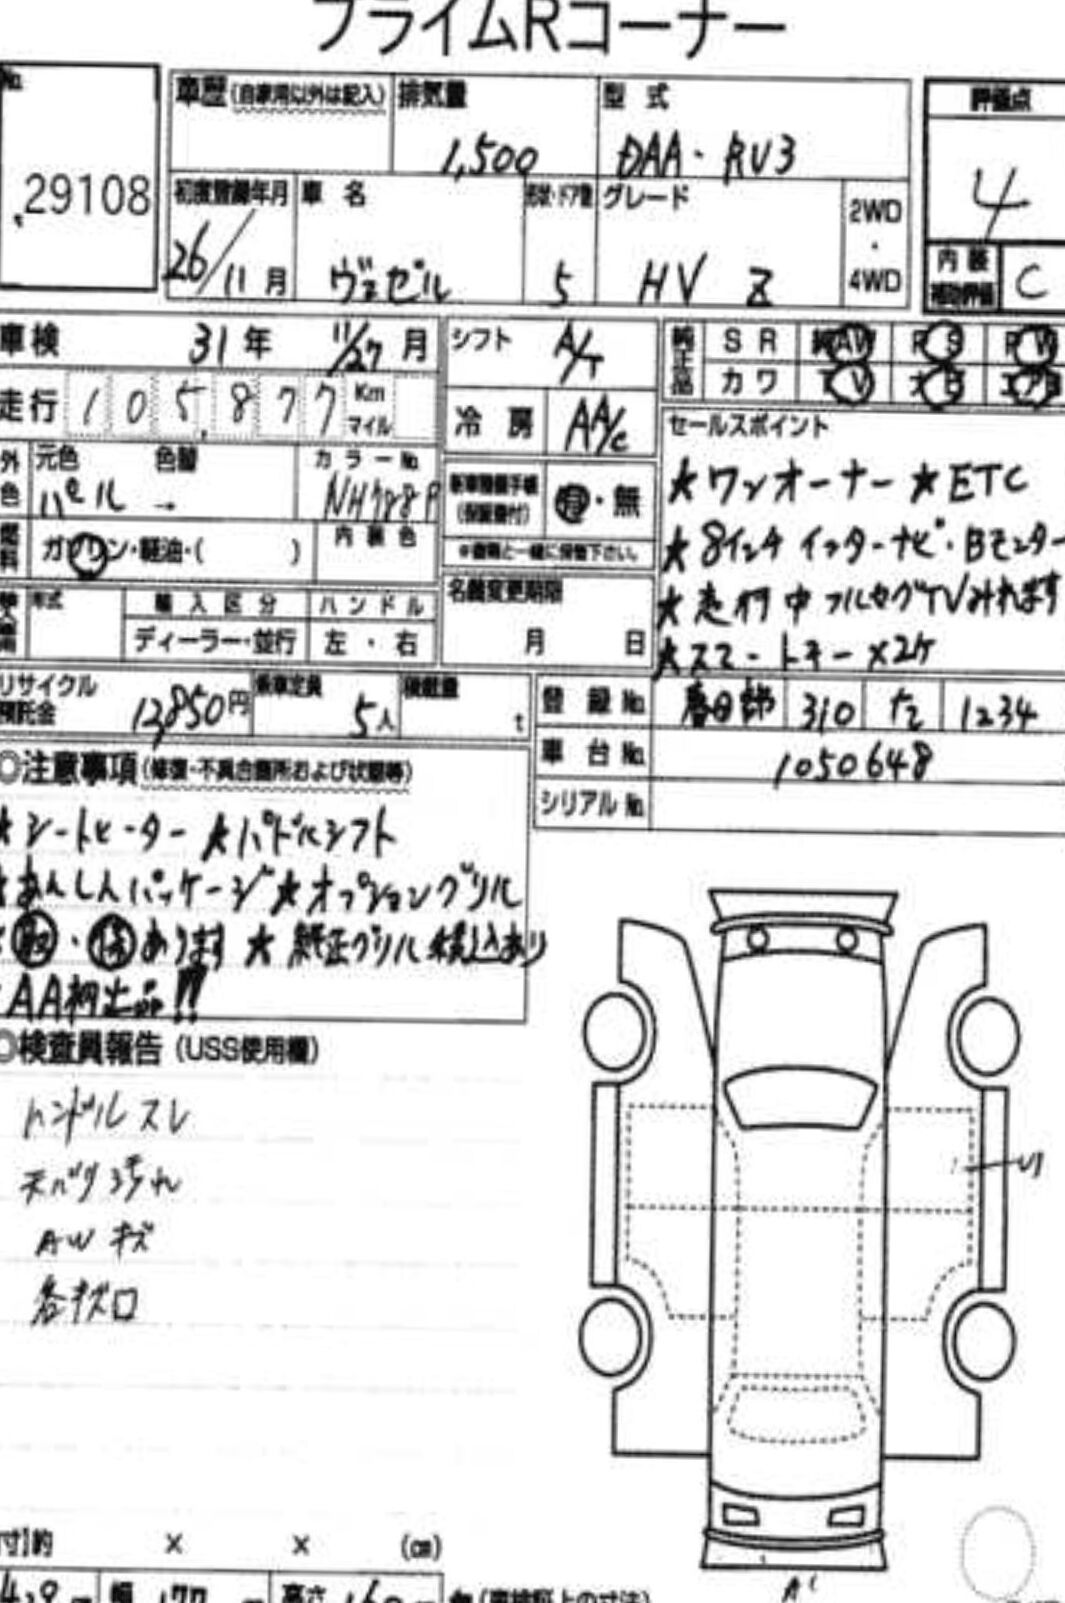 プライムRコーナー
No.
29108
車歴(自家用以外は記入)
排気量
1,500
型式
DAA-RV3
評価点
4
初度登録年月
26/11月
車名
ヴェゼル
形状・ドア数
5
グレード
HV Z
2WD・4WD
内装補助評価
C
車検 31年 11/27月
シフト A/T
純正品 SR AW PS PW
カワ TV エアB
走行 105,877 Km マイル
冷房 AA/C
セールスポイント
★ワンオーナー ★ETC
★8インチ インターナビ・Bモニター
★走行中フルセグTVみれます
★スマートキー×2ケ
外色 元色 パール 色替 → カラーNo. NH788P
新車整備手帳(保証書付) 有・無
※書類と一緒に保管下さい。
燃料 ガソリン・軽油・( )
内装色
名義変更期限
月 日
年式 輸入区分 ハンドル
ディーラー・並行 左・右
リサイクル預託金 12,850円
乗車定員 5人
積載量 t
登録No. 春日部 310 1234
車台No. 1050648
シリアルNo.
◎注意事項(修復・不具合箇所および状態等)
★シートヒーター ★パドルシフト
★あんしんパッケージ ★オプショングリル
取・保あります ★純正グリル積込あり
AA初出品!!
◎検査員報告(USS使用欄)
ハンドルスレ
天バリ汚れ
AWキズ
各キズ
A1
寸約 × × (cm)
幅 177 高さ